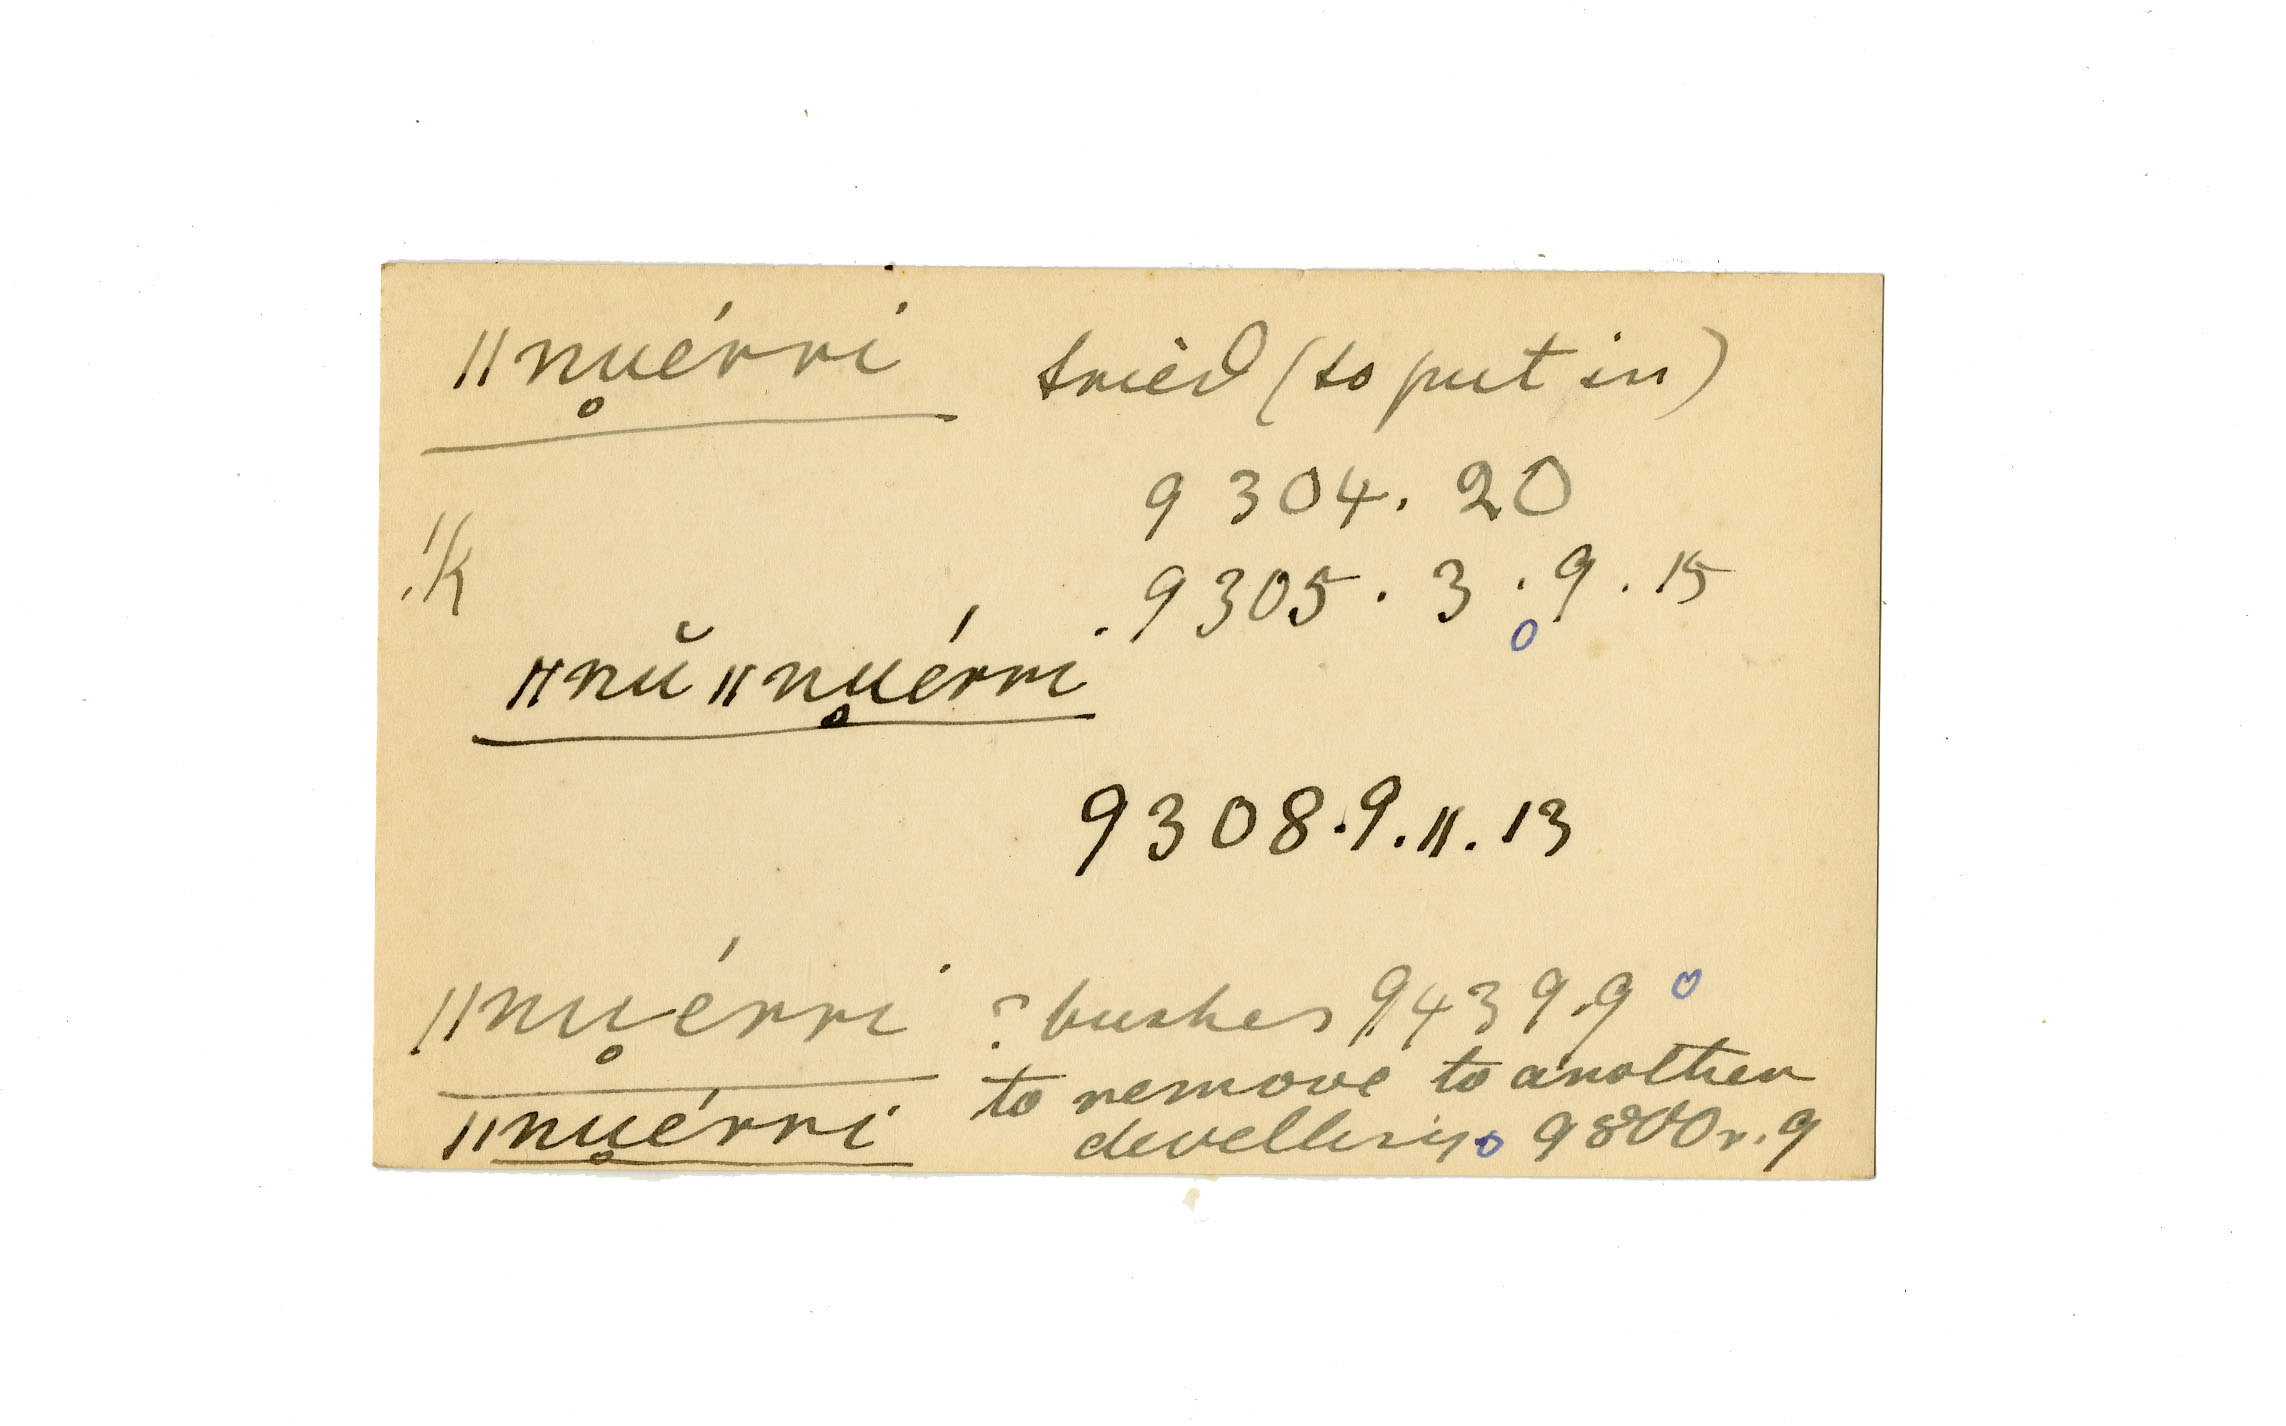 ǁnu̥érri tried (to put in)
9304. 20
!k 9305. 3. 9. 15
ǁnŭǁnu̥érri
9308. 9. 11. 13
ǁnu̥érri ? bushes 9439. 9
ǁnu̥érri to remove to another
dwelling 9800r. 9